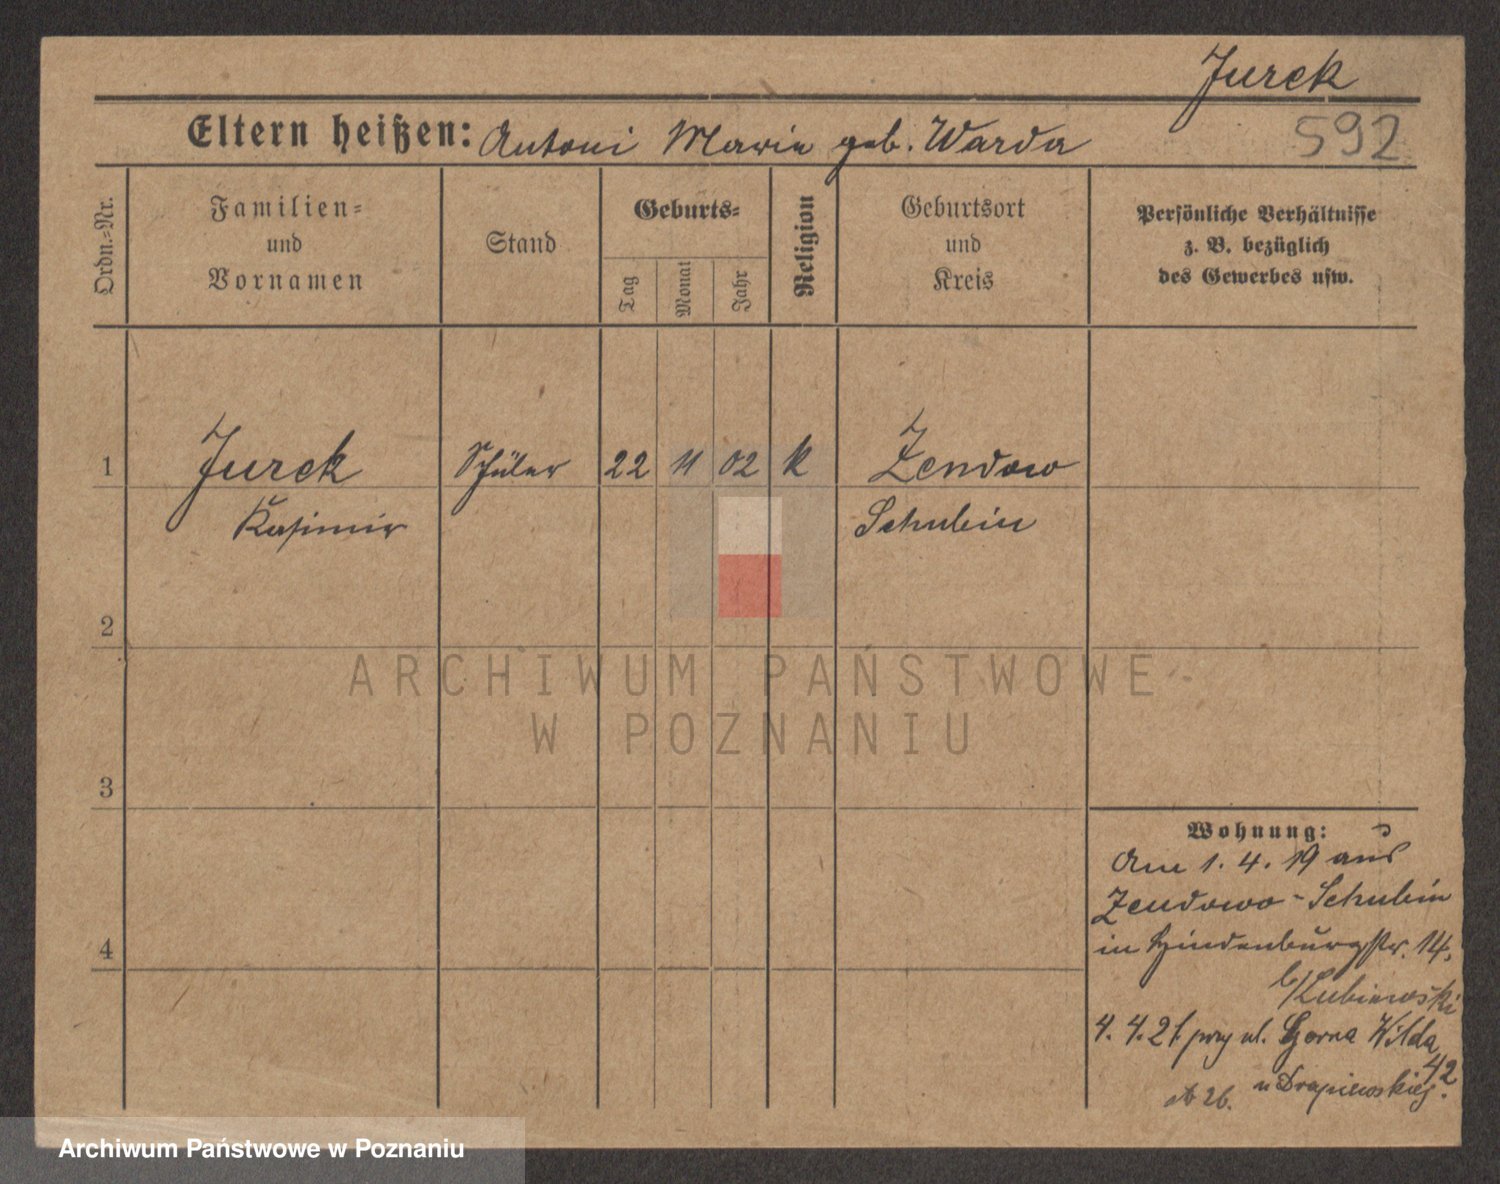 Jurek
Eltern heißen: Antoni Marie geb. Warda
592
Ordn.=Nr.
Familien=
und
Vornamen
Stand
Geburts=
Tag
Monat
Jahr
Religion
Geburtsort
und
Kreis
Persönliche Verhältnisse
z. B. bezüglich
des Gewerbes usw.
1 Jurek Schüler 22 11 02 k Zendowo
Kasimir Schubin
2
3
4
Wohnung:
Am 1. 4. 19 aus
Zendowo - Schubin
in Hindenburgstr. 14.
b/Kubiewski
4. 4. 21 przy ul. Gorna Wilda
42
u Drapiewskiej.
26.
ARCHIWUM PAŃSTWOWE
W POZNANIU
Archiwum Państwowe w Poznaniu